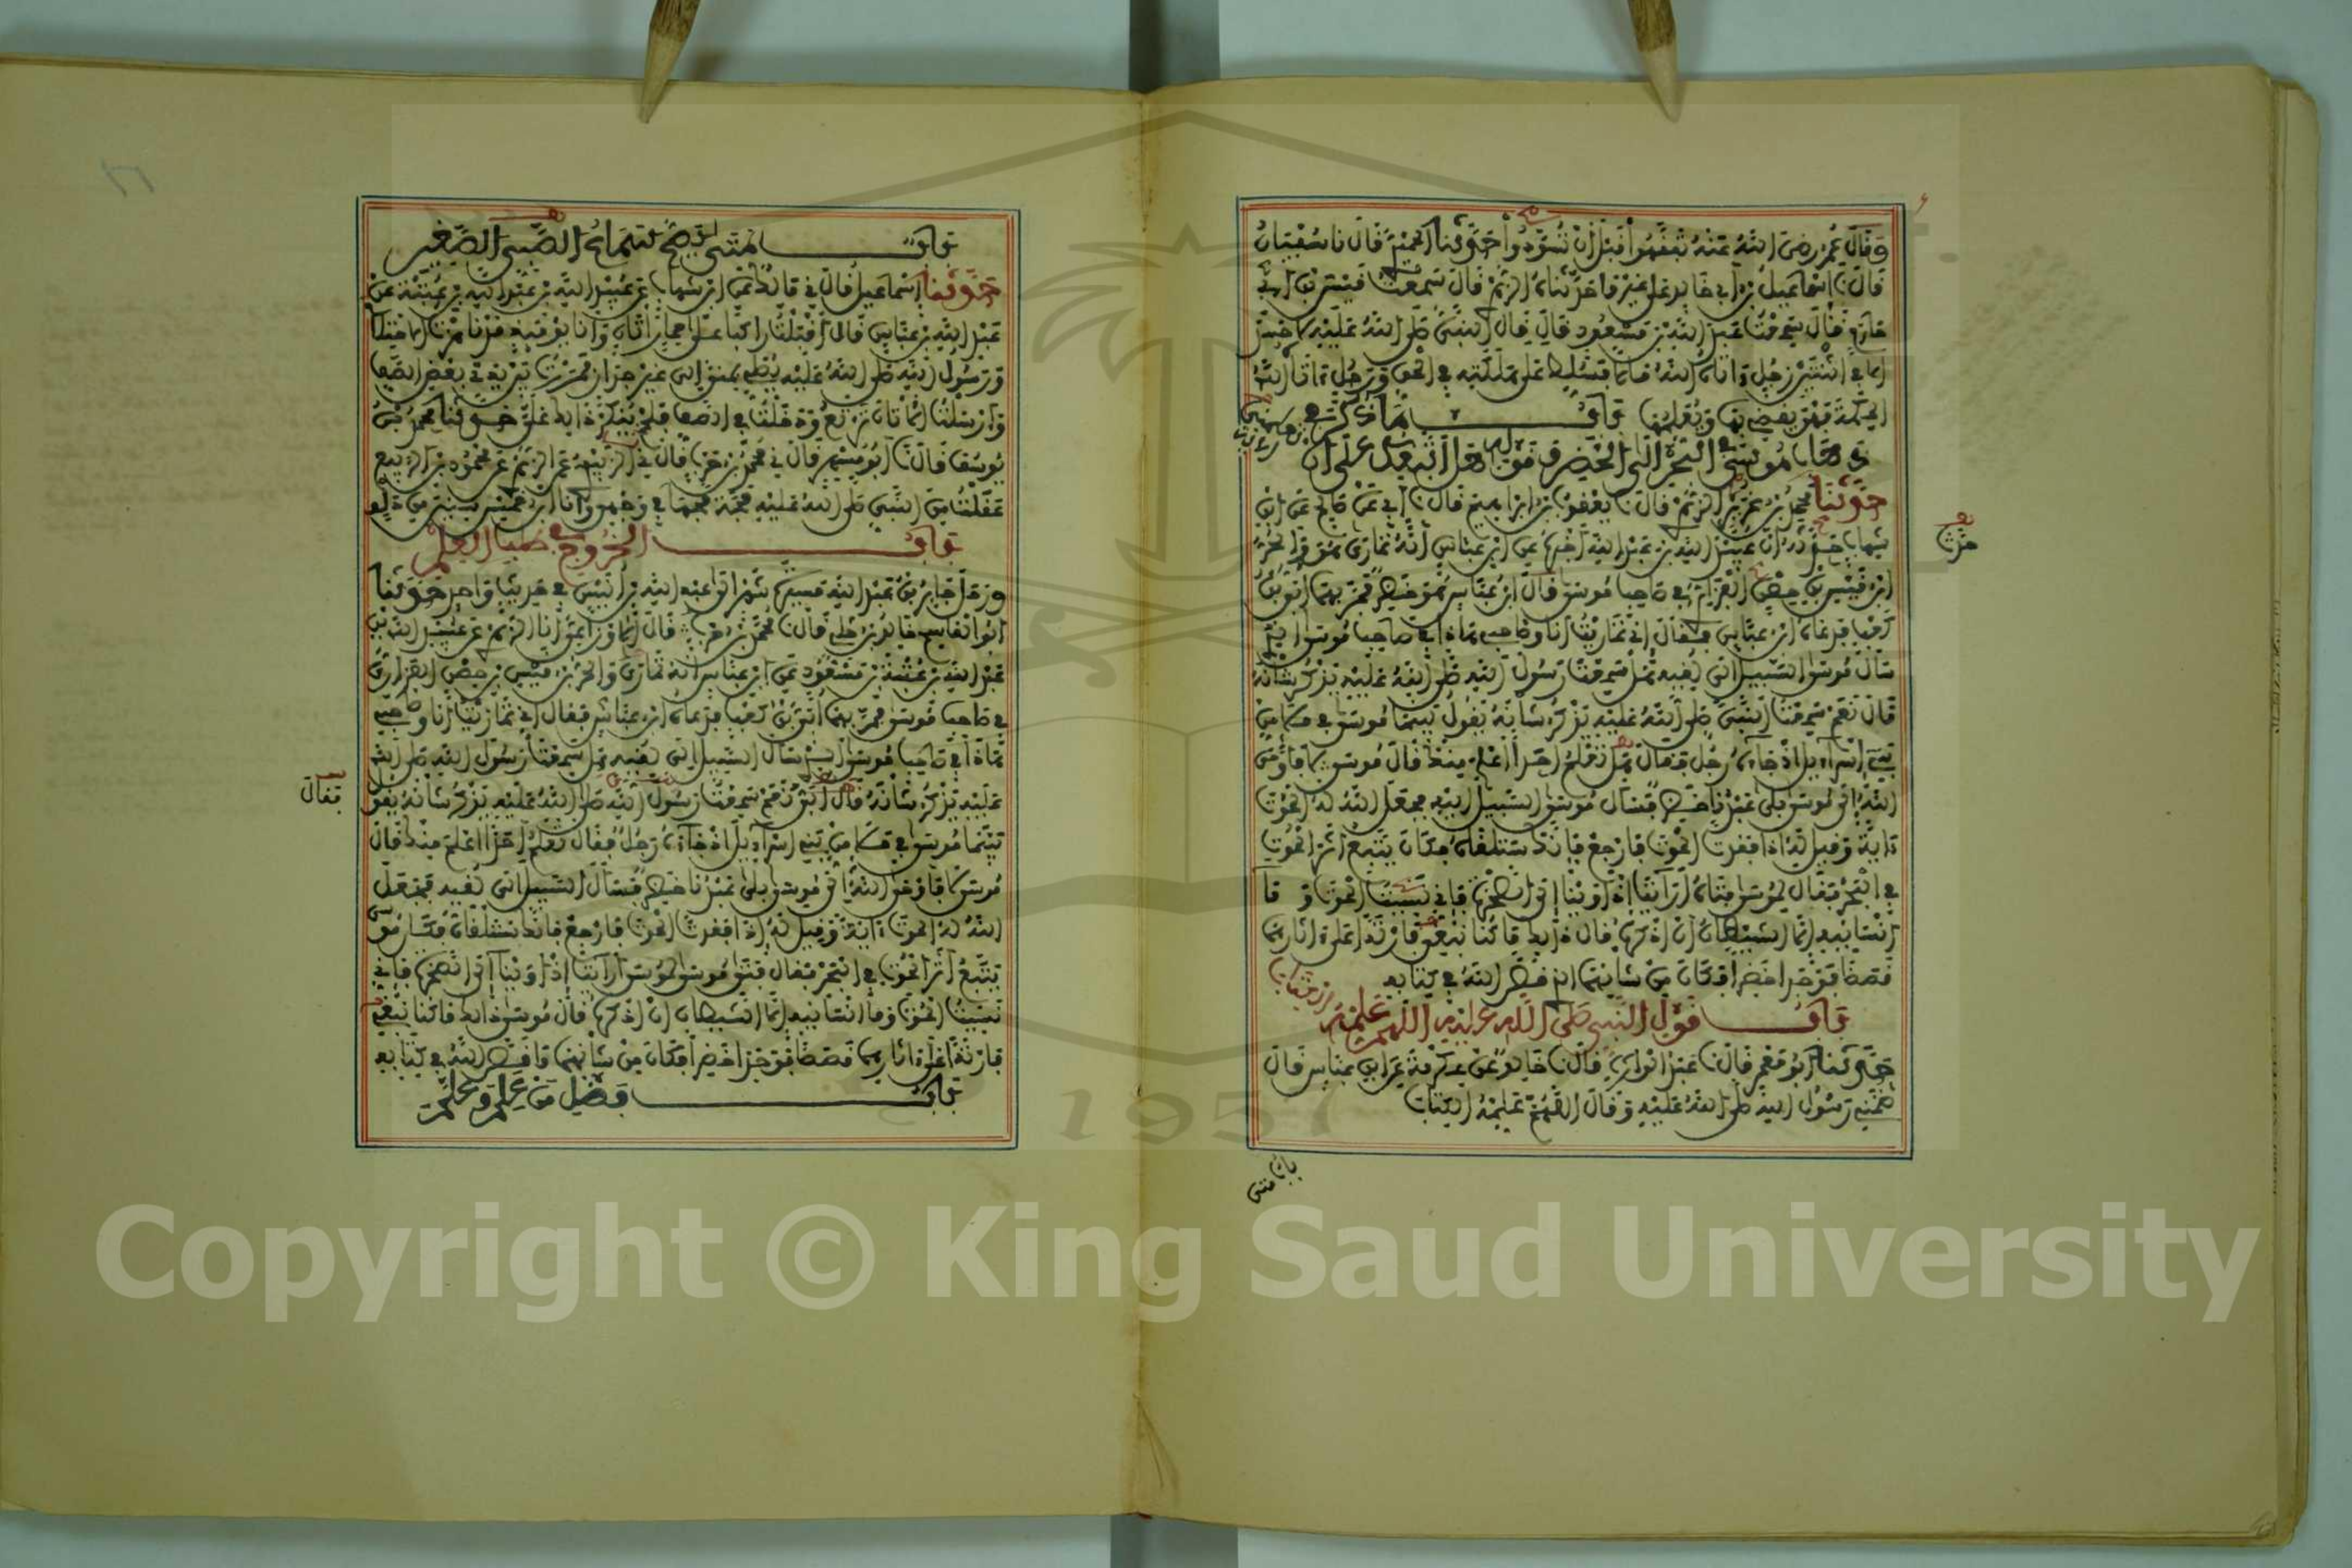 وَقَالَ عُمَرُ رَضِيَ اللَّهُ عَنْهُ تَفَقَّهُوا قَبْلَ أَنْ تُسَوَّدُوا حَدَّثَنَا الحُمَيْدِيُّ قَالَ نا سُفْيَانُ
قَالَ نا إسْمَاعِيلُ بْنُ أَبِي خَالِدٍ عَلَى غَيْرِ مَا حَدَّثَنَاهُ الزُّهْرِيُّ قَالَ سَمِعْتُ قَيْسَ بْنَ أَبِي
حَازِمٍ قَالَ سَمِعْتُ عَبْدَ اللَّهِ بْنَ مَسْعُودٍ قَالَ قَالَ النَّبِيُّ صَلَّى اللَّهُ عَلَيْهِ لا حَسَدَ
إلا فِي اثْنَتَيْنِ رَجُلٍ آتَاهُ اللَّهُ مَالًا فَسُلِّطَ عَلَى هَلَكَتِهِ فِي الْحَقِّ وَرَجُلٍ آتَاهُ اللَّهُ
الحِكْمَةَ فَهُوَ يَقْضِي بِهَا وَيُعَلِّمُهَا بَابُ مَا ذُكِرَ فِي
ذَهَابِ مُوسَى فِي البَحْرِ إلَى الخَضِرِ وَقَوْلِهِ هَلْ أَتَّبِعُكَ عَلَى أَنْ
حَدَّثَنَا مُحَمَّدُ بْنُ غُرَيْرٍ الزُّهْرِيُّ قَالَ نا يَعْقُوبُ بْنُ إبْرَاهِيمَ قَالَ نا أَبِي عَنْ صَالِحٍ عَنِ ابْنِ
شِهَابٍ حَدَّثَهُ أَنَّ عُبَيْدَ اللَّهِ بْنَ عَبْدِ اللَّهِ أَخْبَرَهُ عَنِ ابْنِ عَبَّاسٍ أَنَّهُ تَمَارَى هُوَ وَالْحُرُّ
ابْنُ قَيْسِ بْنِ حِصْنٍ الْفَزَارِيُّ فِي صَاحِبِ مُوسَى قَالَ ابْنُ عَبَّاسٍ هُوَ خَضِرٌ فَمَرَّ بِهِمَا أُبَيُّ بْنُ
كَعْبٍ فَدَعَاهُ ابْنُ عَبَّاسٍ فَقَالَ إنِّي تَمَارَيْتُ أَنَا وَصَاحِبِي هَذَا فِي صَاحِبِ مُوسَى الَّذِي
سَأَلَ مُوسَى السَّبِيلَ إلَى لُقِيِّهِ هَلْ سَمِعْتَ رَسُولَ اللَّهِ صَلَّى اللَّهُ عَلَيْهِ يَذْكُرُ شَأْنَهُ
قَالَ نَعَمْ سَمِعْتُ النَّبِيَّ صَلَّى اللَّهُ عَلَيْهِ يَذْكُرُ شَأْنَهُ يَقُولُ بَيْنَمَا مُوسَى فِي مَلَإٍ مِنْ
بَنِي إسْرَائِيلَ إذْ جَاءَهُ رَجُلٌ فَقَالَ هَلْ تَعْلَمُ أَحَدًا أَعْلَمَ مِنْكَ قَالَ مُوسَى لا فَأَوْحَى
اللَّهُ إلَى مُوسَى بَلَى عَبْدُنَا خَضِرٌ فَسَأَلَ مُوسَى السَّبِيلَ إلَيْهِ فَجَعَلَ اللَّهُ لَهُ الْحُوتَ
آيَةً وَقِيلَ لَهُ إذَا فَقَدْتَ الْحُوتَ فَارْجِعْ فَإِنَّكَ سَتَلْقَاهُ فَكَانَ يَتَّبِعُ أَثَرَ الْحُوتِ
فِي الْبَحْرِ فَقَالَ لِمُوسَى فَتَاهُ أَرَأَيْتَ إذْ أَوَيْنَا إلَى الصَّخْرَةِ فَإِنِّي نَسِيتُ الْحُوتَ وَمَا
أَنْسَانِيهِ إلَّا الشَّيْطَانُ أَنْ أَذْكُرَهُ قَالَ ذَلِكَ مَا كُنَّا نَبْغِي فَارْتَدَّا عَلَى آثَارِهِمَا
قَصَصًا فَوَجَدَا خَضِرًا فَكَانَ مِنْ شَأْنِهِمَا الَّذِي قَصَّ اللَّهُ فِي كِتَابِهِ
بَابُ قَوْلِ النَّبِيِّ صَلَّى اللَّهُ عَلَيْهِ اللَّهُمَّ عَلِّمْهُ الْكِتَابَ
حَدَّثَنَا أَبُو مَعْمَرٍ قَالَ نا عَبْدُ الْوَارِثِ قَالَ نا خَالِدٌ عَنْ عِكْرِمَةَ عَنِ ابْنِ عَبَّاسٍ قَالَ
ضَمَّنِي رَسُولُ اللَّهِ صَلَّى اللَّهُ عَلَيْهِ وَقَالَ اللَّهُمَّ عَلِّمْهُ الْكِتَابَ
بَابُ مَتَى
بَابُ مَتَى يَصِحُّ سَمَاعُ الصَّبِيِّ الصَّغِيرِ
حَدَّثَنَا إسْمَاعِيلُ قَالَ نِي مَالِكٌ عَنِ ابْنِ شِهَابٍ عَنْ عُبَيْدِ اللَّهِ بْنِ عَبْدِ اللَّهِ بْنِ عُتْبَةَ عَنْ
عَبْدِ اللَّهِ بْنِ عَبَّاسٍ قَالَ أَقْبَلْتُ رَاكِبًا عَلَى حِمَارٍ أَتَانٍ وَأَنَا يَوْمَئِذٍ قَدْ نَاهَزْتُ الِاحْتِلَامَ
وَرَسُولُ اللَّهِ صَلَّى اللَّهُ عَلَيْهِ يُصَلِّي بِمِنًى إلَى غَيْرِ جِدَارٍ فَمَرَرْتُ بَيْنَ يَدَيْ بَعْضِ الصَّفِّ
وَأَرْسَلْتُ الْأَتَانَ تَرْتَعُ وَدَخَلْتُ فِي الصَّفِّ فَلَمْ يُنْكَرْ ذَلِكَ عَلَيَّ حَدَّثَنَا مُحَمَّدُ بْنُ
يُوسُفَ قَالَ نا أَبُو مُسْهِرٍ قَالَ نِي مُحَمَّدُ بْنُ حَرْبٍ قَالَ نِي الزُّبَيْدِيُّ عَنِ الزُّهْرِيِّ عَنْ مَحْمُودِ بْنِ الرَّبِيعِ
عَقَلْتُ مِنَ النَّبِيِّ صَلَّى اللَّهُ عَلَيْهِ مَجَّةً مَجَّهَا فِي وَجْهِي وَأَنَا ابْنُ خَمْسِ سِنِينَ مِنْ دَلْوٍ
بَابُ الْخُرُوجِ فِي طَلَبِ الْعِلْمِ
وَرَحَلَ جَابِرُ بْنُ عَبْدِ اللَّهِ مَسِيرَةَ شَهْرٍ إلَى عَبْدِ اللَّهِ بْنِ أُنَيْسٍ فِي حَدِيثٍ وَاحِدٍ حَدَّثَنَا
أَبُو الْقَاسِمِ خَالِدُ بْنُ خَلِيٍّ قَالَ نا مُحَمَّدُ بْنُ حَرْبٍ قَالَ الْأَوْزَاعِيُّ أَنَا الزُّهْرِيُّ عَنْ عُبَيْدِ اللَّهِ بْنِ
عَبْدِ اللَّهِ بْنِ عُتْبَةَ بْنِ مَسْعُودٍ عَنِ ابْنِ عَبَّاسٍ أَنَّهُ تَمَارَى وَالْحُرُّ بْنُ قَيْسِ بْنِ حِصْنٍ الْفَزَارِيُّ
فِي صَاحِبِ مُوسَى فَمَرَّ بِهِمَا أُبَيُّ بْنُ كَعْبٍ فَدَعَاهُ ابْنُ عَبَّاسٍ فَقَالَ إنِّي تَمَارَيْتُ أَنَا وَصَاحِبِي
هَذَا فِي صَاحِبِ مُوسَى الَّذِي سَأَلَ السَّبِيلَ إلَى لُقِيِّهِ هَلْ سَمِعْتَ رَسُولَ اللَّهِ صَلَّى اللَّهُ
عَلَيْهِ يَذْكُرُ شَأْنَهُ قَالَ أُبَيٌّ نَعَمْ سَمِعْتُ رَسُولَ اللَّهِ صَلَّى اللَّهُ عَلَيْهِ يَذْكُرُ شَأْنَهُ يَقُولُ
فَقَالَ
بَيْنَمَا مُوسَى فِي مَلَإٍ مِنْ بَنِي إسْرَائِيلَ إذْ جَاءَهُ رَجُلٌ فَقَالَ تَعْلَمُ أَحَدًا أَعْلَمَ مِنْكَ قَالَ
مُوسَى لا فَأَوْحَى اللَّهُ إلَى مُوسَى بَلَى عَبْدُنَا خَضِرٌ فَسَأَلَ السَّبِيلَ إلَى لُقِيِّهِ فَجَعَلَ
اللَّهُ لَهُ الْحُوتَ آيَةً وَقِيلَ لَهُ إذَا فَقَدْتَ الْحُوتَ فَارْجِعْ فَإِنَّكَ سَتَلْقَاهُ فَكَانَ مُوسَى
يَتَّبِعُ أَثَرَ الْحُوتِ فِي الْبَحْرِ فَقَالَ فَتَى مُوسَى لِمُوسَى أَرَأَيْتَ إذْ أَوَيْنَا إلَى الصَّخْرَةِ فَإِنِّي
نَسِيتُ الْحُوتَ وَمَا أَنْسَانِيهِ إلَّا الشَّيْطَانُ أَنْ أَذْكُرَهُ قَالَ مُوسَى ذَلِكَ مَا كُنَّا نَبْغِي
فَارْتَدَّا عَلَى آثَارِهِمَا قَصَصًا فَوَجَدَا خَضِرًا فَكَانَ مِنْ شَأْنِهِمَا مَا قَصَّ اللَّهُ فِي كِتَابِهِ
بَابُ فَضْلِ مَنْ عَلِمَ وَعَلَّمَ
1957
Copyright © King Saud University